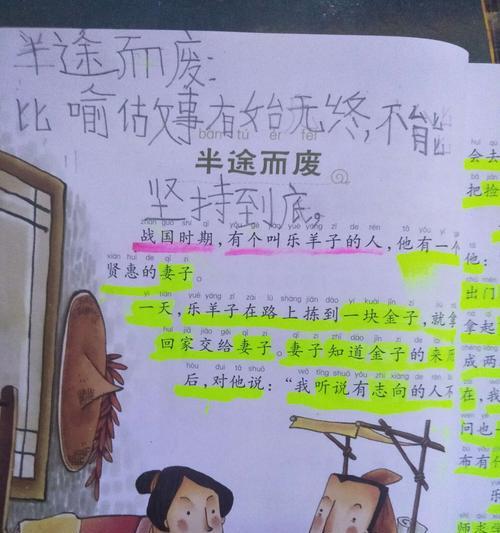 半途而废:
比喻做事有始无终,不能
bàn tú ér fèi
半途而废
坚持到底。
zhàn guó shí qī yǒu ge jiào yuè yáng zǐ de rén
战国时期,有个叫乐羊子的人,他有一
xián huì de qī zi
贤惠的妻子。
yì tiān yuè yáng zǐ zài lù shàng jiǎn dào yí kuài jīn zi jiù
一天,乐羊子在路上拣到一块金子,就拿
huí jiā jiāo gěi qī zi qī zi zhī dào jīn zi de
回家交给妻子。妻子知道金子的来
hòu duì tā shuō wǒ tīng shuō yǒu zhì xiàng de rén
后,对他说:“我听说有志向的人不
会去
把捡
他:
出门
拿起
成两
在,我
问也
布有
乐
师求学